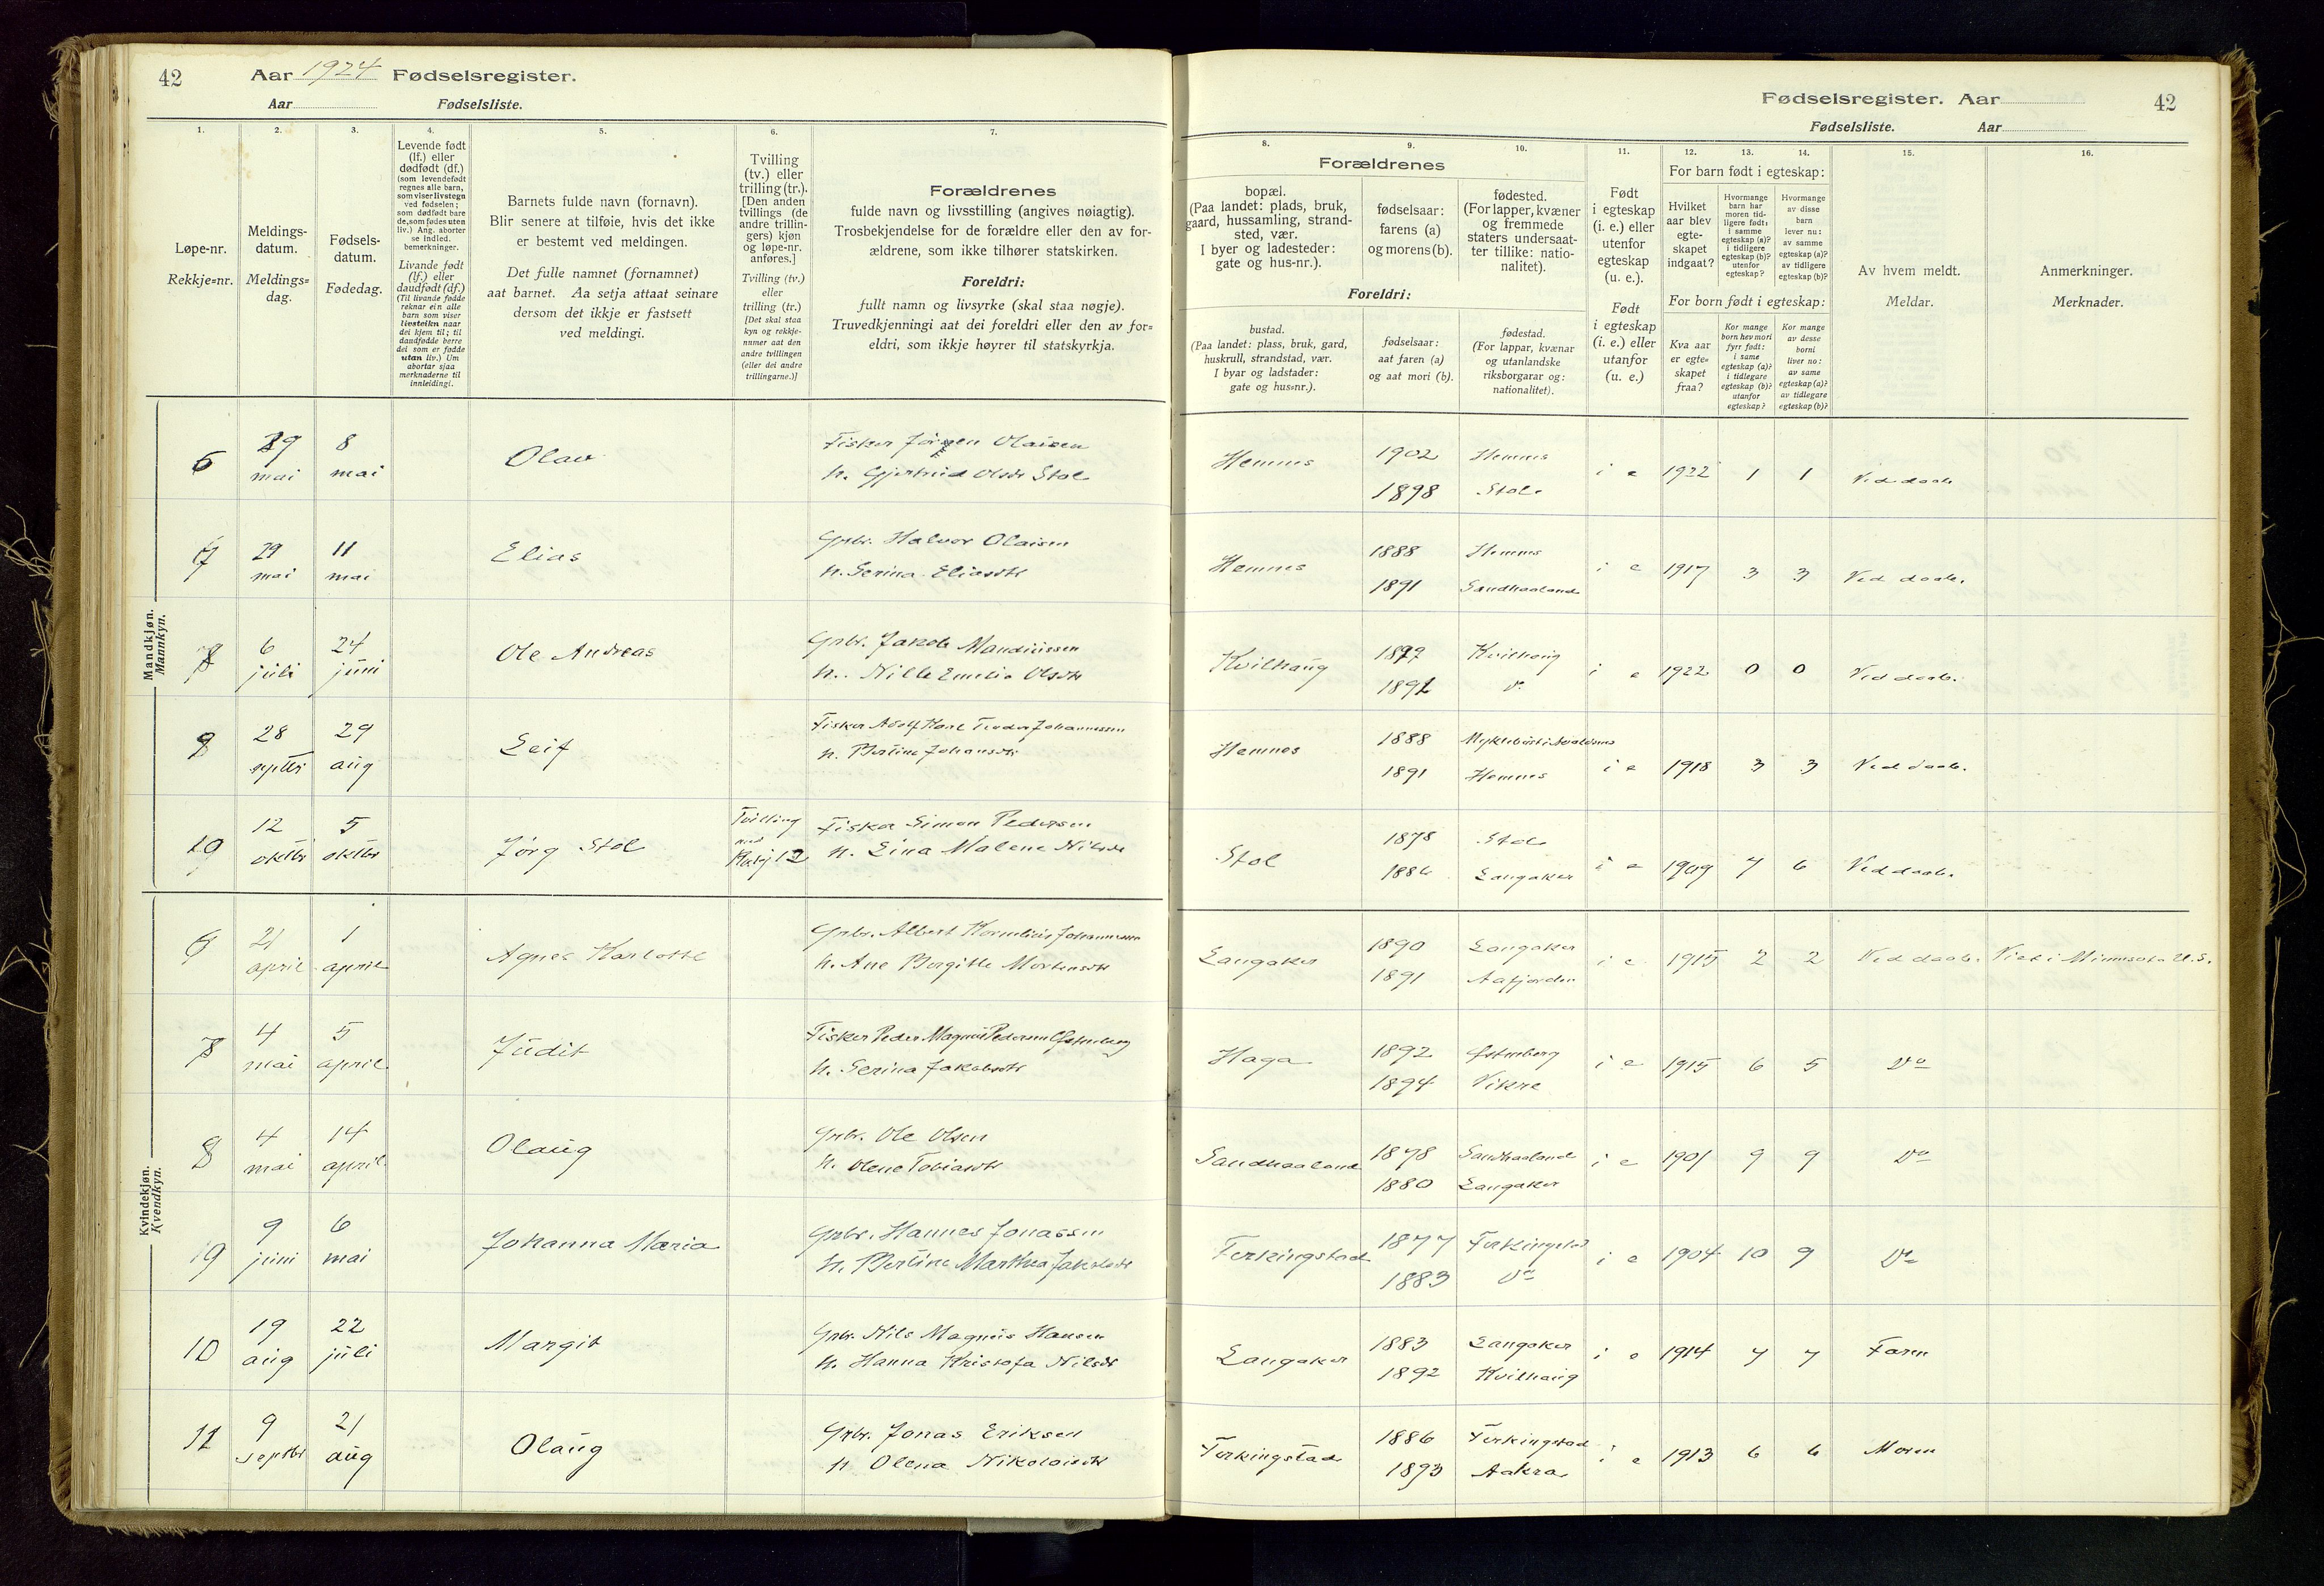 42
Aar 1924 Fødselsregister.
Aar Fødselsliste.
1.
2.
3.
4.
5.
6.
7.
Løpe-nr.
Rekkje=nr.
Meldings-
datum.
Meldings=
dag.
Fødsels-
datum.
Fødedag.
Levende født
(lf.) eller
dødfødt (df.)
(som levendefødt
regnes alle barn,
som viser livstegn
ved fødselen;
som dødfødt bare
de, som fødes uten
liv.) Ang. aborter
se indled.
bemerkninger.
Livande født
(lf.) eller
daudfødt (df.)
(Til livande fødde
reknar ein alle
barn som viser
livsteikn naar
dei kjem til; til
daudfødde berre
dei som er fødde
utan liv.) Um
abortar sjaa
merknaderne til
innleidingi.
Barnets fulde navn (fornavn).
Blir senere at tilføie, hvis det ikke
er bestemt ved meldingen.
Det fulle namnet (fornamnet)
aat barnet. Aa setja attaat seinare
dersom det ikkje er fastsett
ved meldingi.
Tvilling
(tv.) eller
trilling (tr.).
[Den anden
tvillings (de
andre trillin-
gers) kjøn
og løpe-nr.
anføres.]
Tvilling (tv.)
eller
trilling (tr.)
[Det skal staa
kyn og rekkje-
numer aat den
andre tvillingen
(eller dei andre
trillingarne.)]
Forældrenes
fulde navn og livsstilling (angives nøiagtig).
Trosbekjendelse for de forældre eller den av for-
ældrene, som ikke tilhører statskirken.
Foreldri:
fullt namn og livsyrke (skal staa nøgje).
Truvedkjenningi aat dei foreldri eller den av for=
eldri, som ikkje høyrer til statskyrkja.
Mandkjøn.
Mannkyn.
6 29 mai 8 mai Olav Fisker Jørgen Olaisen
h. Gjertrud Olsdtr Stol
7 29 mai 11 mai Elias Grbr. Halvor Olaisen
h. Serina Eliasdtr
8 6 juli 24 juni Ole Andreas Grbr. Jakob Mandiussen
h. Nille Emilie Olsdtr
9 28 septbr 29 aug Leif Fisker Adolf Karl Teodor Johannessen
h. Bertine Johansdtr
10 12 oktbr 5 oktbr Jørg Stol Tvilling med Kvkj 12 Fisker Simon Pedersen
h. Lina Malene Nilsdtr
Kvindekjøn.
Kvendkyn.
6 21 april 1 april Agnes Karlotte Grbr. Albert Kornelius Johannessen
h. Ane Borgitte Mortensdtr
7 4 mai 5 april Judit Fisker Peder Magnus Pedersen
h. Serina Jakobsdtr
8 4 mai 14 april Olaug Grbr. Ole Olsen
h. Olene Tobiasdtr
9 9 juni 6 mai Johanna Maria Grbr. Hannes Jonassen
h. Bertine Marthea Jakobsdtr
10 19 aug 22 juli Margit Grbr. Nils Magnus Hansen
h. Hanna Kristofa Nilsdtr
11 9 septbr 21 aug Olaug Grbr. Jonas Eriksen
h. Olena Nikolaisdtr
Fødselsregister. Aar
42
Fødselsliste. Aar
8.
9.
10.
11.
12.
13.
14.
15.
16.
Forældrenes
bopæl.
(Paa landet: plads, bruk,
gaard, hussamling, strand-
sted, vær.
I byer og ladesteder:
gate og hus-nr.).
fødselsaar:
farens (a)
og morens (b).
fødested.
(For lapper, kvæner
og fremmede
staters undersaat-
ter tillike: natio-
nalitet).
Foreldri:
bustad.
(Paa landet: plass, bruk, gard,
huskrull, strandstad, vær.
I byar og ladstader:
gate og hus=nr.).
fødselsaar:
aat faren (a)
og aat mori (b).
fødestad.
(For lappar, kvænar
og utanlandske
riksborgarar og:
nationalitet).
Født
i egteskap
(i. e.) eller
utenfor
egteskap
(u. e.).
Født
i egteskap
(i. e.) eller
utanfor
(u. e.)
For barn født i egteskap:
Hvilket
aar blev
egte-
skapet
indgaat?
Hvormange
barn har
moren tid-
ligere født:
i samme
egteskap (a)?
i tidligere
egteskap (b)?
utenfor
egteskap?
Hvormange
av disse
barn
lever nu:
av samme
egteskap (a)?
av tidligere
egteskap (b)?
For born født i egteskap:
Kva aar
er egte=
skapet
fraa?
Kor mange
born hev mori
fyrr født:
i same
egteskap (a)?
i tidlegare
egteskap (b)?
utanfor
egteskap?
Kor mange
av desse
borni
liver no:
av same
egteskap (a)?
av tidlegare
egteskap (b)?
Av hvem meldt.
Meldar.
Anmerkninger.
Merknader.
Hemnes 1902 Hemnes i e 1922 1 1 Ved daab.
1898 Stol
Hemnes 1888 Hemnes i e 1917 3 3 Ved daab.
1891 Sandhaaland
Kvilhaug 1897 Kvilhaug i e 1922 0 0 Ved daab.
1892 do
Hemnes 1888 Myklebust i Avaldsnes i e 1918 3 3 Ved daab.
1891 Hemnes
Stol 1878 Stol i e 1909 7 6 Ved daab.
1886 Langaker
Langaker 1890 Langaker i e 1915 2 2 Ved daab. Viet i Minnesota U.S.
1891 Aafjorden
Haga 1892 i e 1915 6 5 Do
1894 Vikre
Sandhaaland 1878 Sandhaaland i e 1901 9 9 Do
1880 Langaker
Ferkingstad 1877 Ferkingstad i e 1904 10 9 Do
1883 Do
Langaker 1883 Langaker i e 1914 7 7 Faren
1892 Kvilhaug
Ferkingstad 1886 Ferkingstad i e 1913 6 6 Moren
1893 Aakra